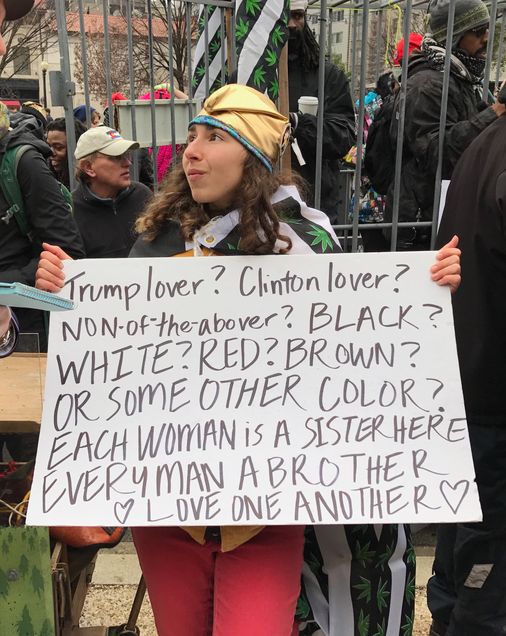 Trump lover? Clinton lover?
NON-of-the-abover? BLACK?
WHITE? RED? BROWN?
OR SOME OTHER COLOR?
EACH WOMAN is A SISTER HERE
EVERY MAN A BROTHER
♡ LOVE ONE ANOTHER ♡